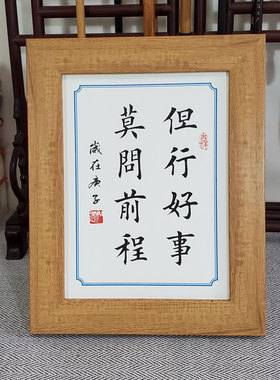 但行好事
莫問前程
歲在庚子